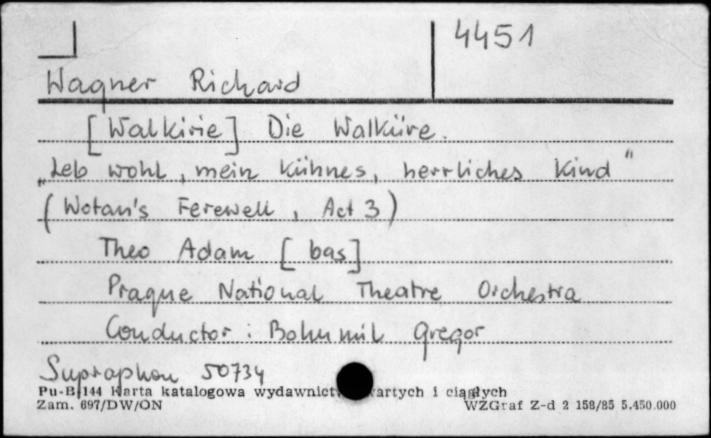 4451
Wagner Richard
[Walkirie] Die Walküre.
„Leb wohl, mein kühnes, herrliches Kind"
(Wotan's Ferewell, Act 3)
Theo Adam [bas]
Prague National Theatre Orchestra
Conductor: Bohumil Gregor
Supraphon 50734
Pu-B/144 Karta katalogowa wydawnictw zwartych i ciągłych
Zam. 697/DW/ON WZGraf Z-d 2 158/85 5.450.000